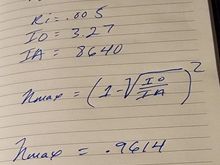 Ri = .005
Io = 3.27
IA = 8640
nmax = (1-√Io/IA)²
nmax = .9614